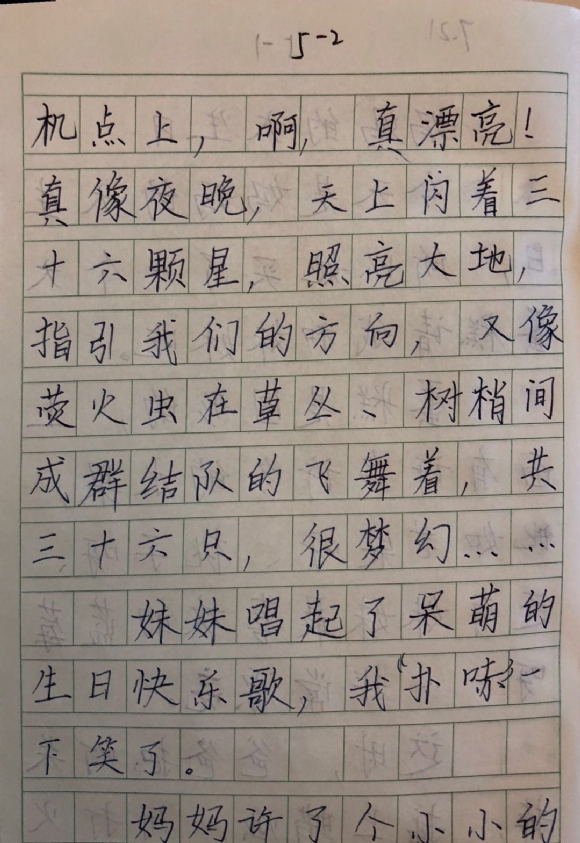 5-2
机点上，啊，真漂亮！
真像夜晚，天上闪着三
十六颗星，照亮大地，
指引我们的方向，又像
萤火虫在草丛、树梢间
成群结队的飞舞着，共
三十六只，很梦幻……
妹妹唱起了呆萌的
生日快乐歌，我“扑哧”一
下笑了。
妈妈许了个小小的